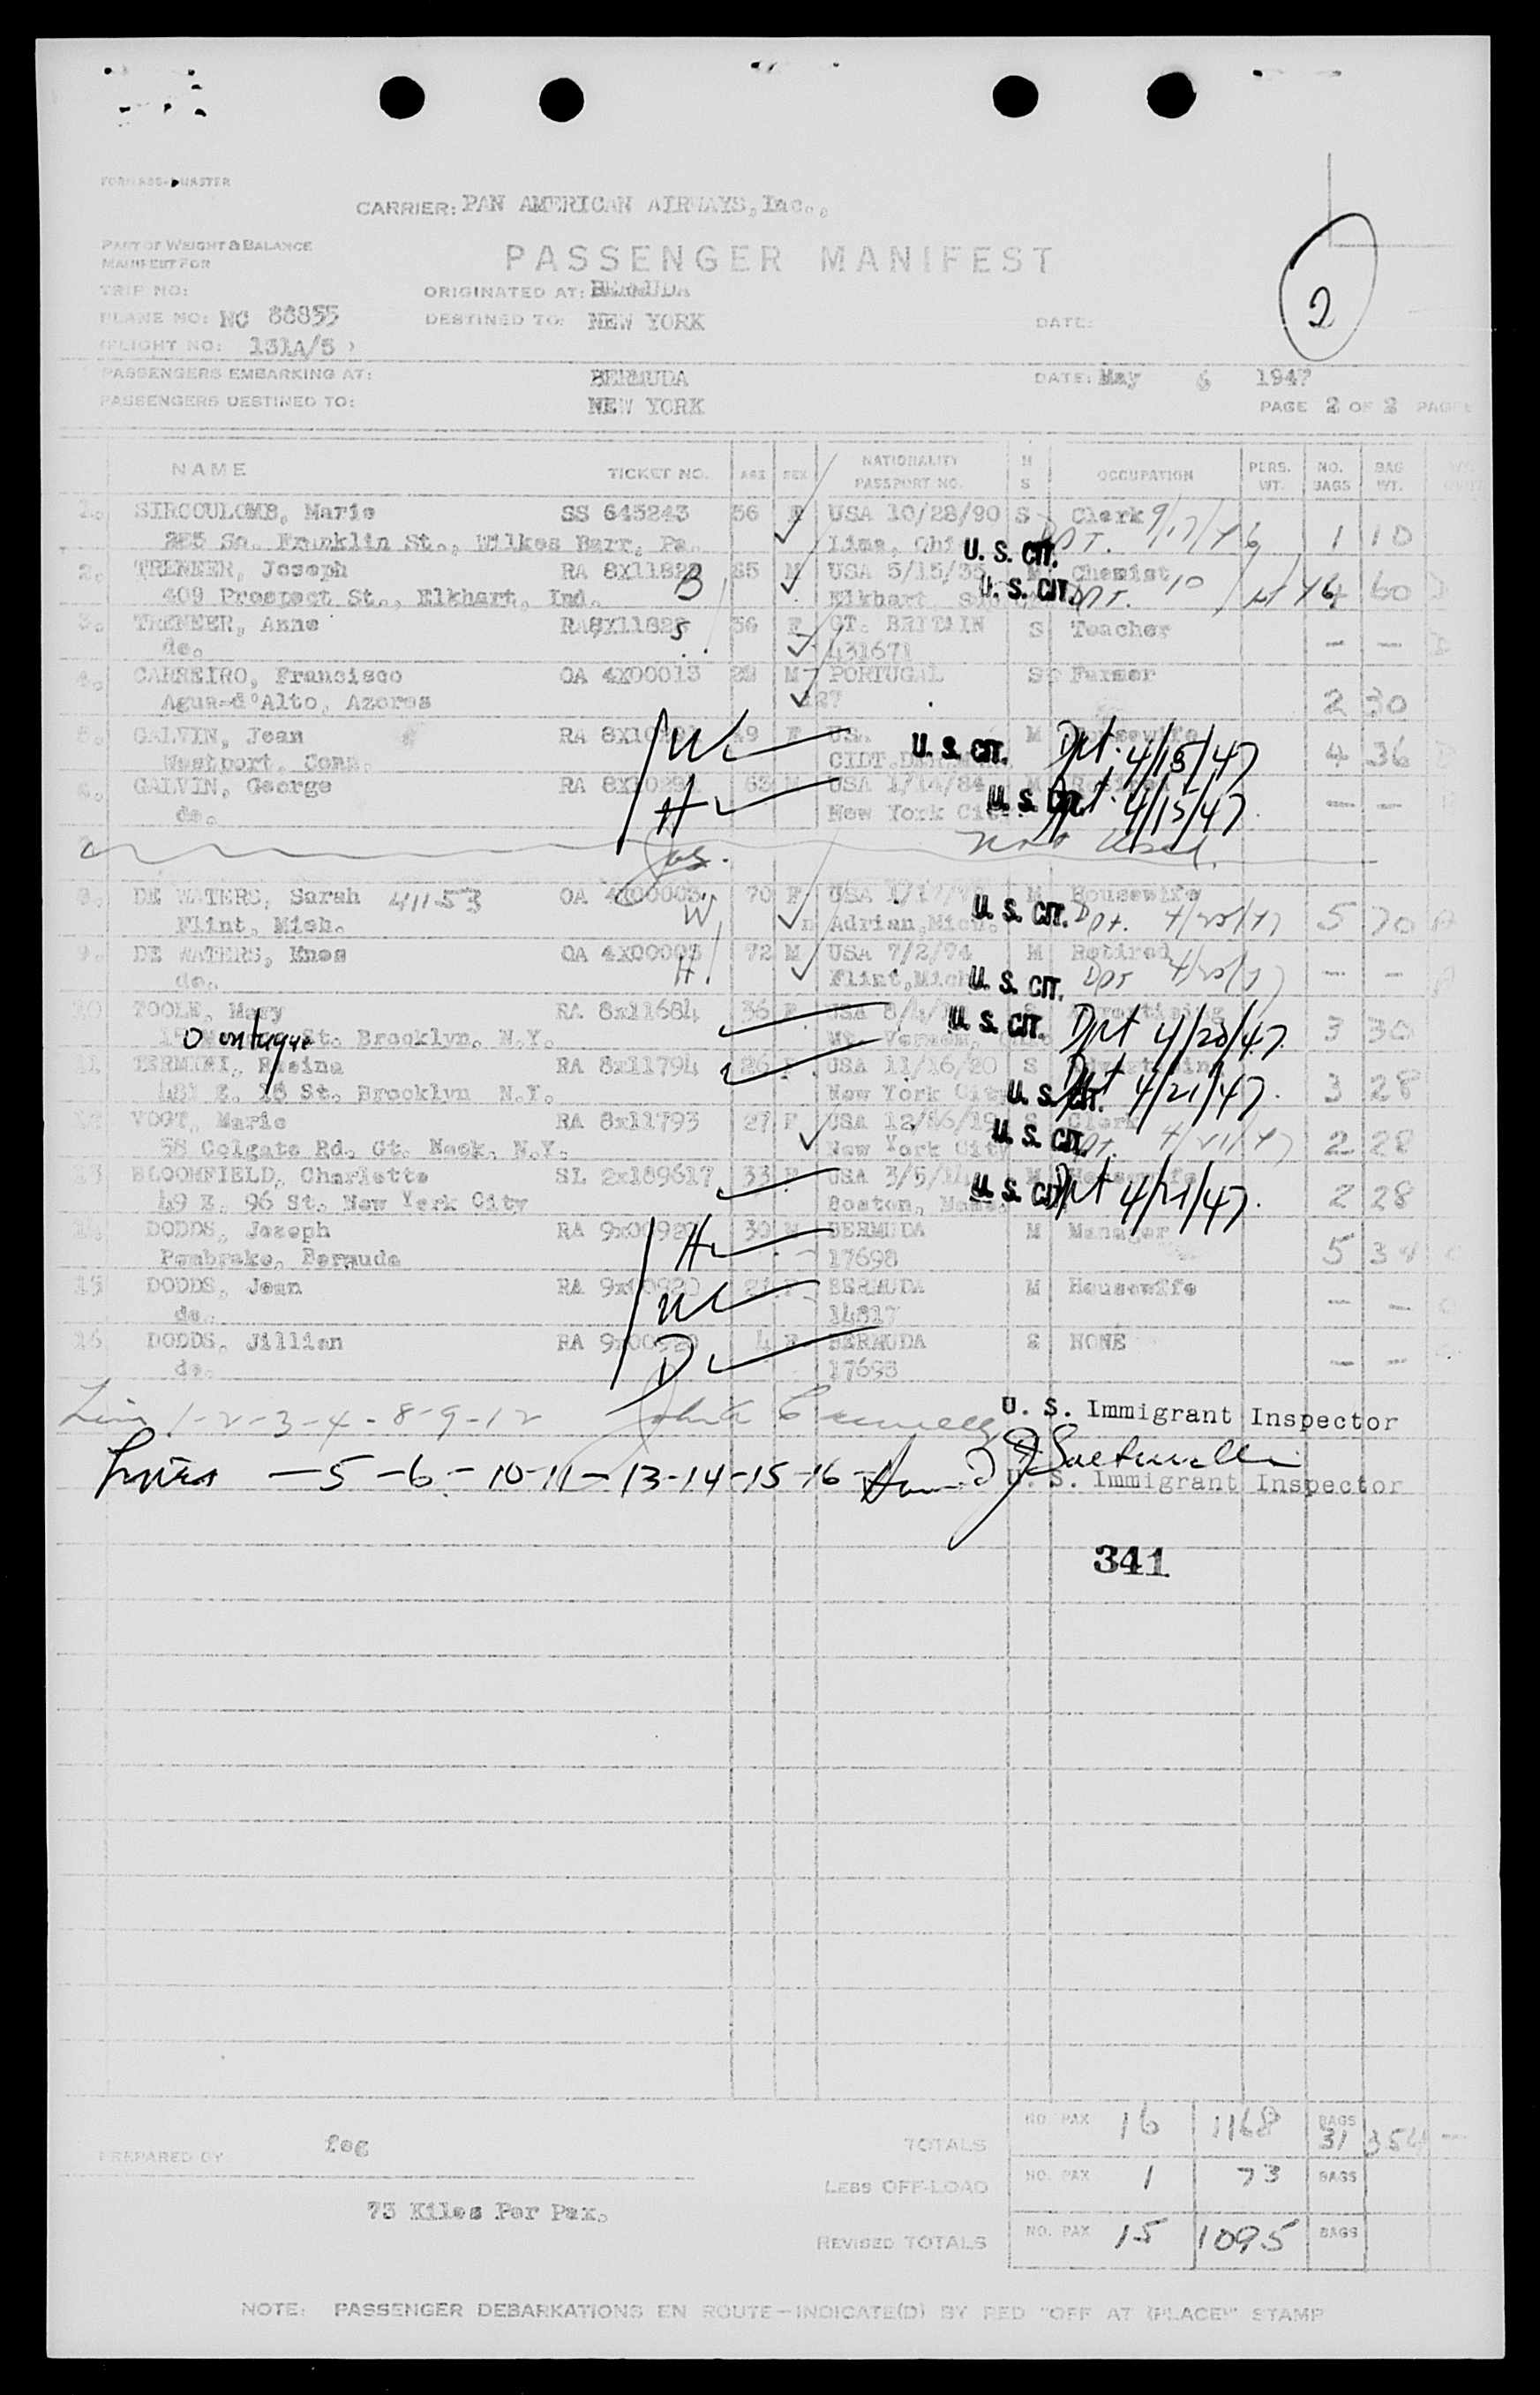 CARRIER: PAN AMERICAN AIRWAYS, Inc.,
PART OF WEIGHT & BALANCE
MANIFEST FOR
PASSENGER MANIFEST
2
TRIP NO:
ORIGINATED AT: BERMUDA
PLANE NO: NC 88855
DESTINED TO: NEW YORK
DATE:
(FLIGHT NO: 131A/5 )
PASSENGERS EMBARKING AT: BERMUDA DATE: May 6 1947
PASSENGERS DESTINED TO: NEW YORK PAGE 2 OF 2 PAGES
NAME TICKET NO. AGE SEX NATIONALITY PASSPORT NO. M S OCCUPATION PERS. WT. NO. BAGS BAG WT.
1. SIRCOULOMB, Marie SS 645243 56 F USA 10/28/90 S Clerk 9/17/46 1 10
Franklin St., Wilkes Barr, Pa. Lima, Ohio U. S. CIT. DPT.
2. TRENEER, Joseph RA 8X11822 B M USA 5/15/ M Chemist 4 60
409 Prospect St., Elkhart, Ind. Elkhart, U. S. CIT. DPT. 10
3. TRENEER, Anne S F GT. BRITAIN S Teacher — —
do. 431671
4. CARREIRO, Francisco OA 4X00013 M PORTUGAL S Farmer
Agua-d'Alto, Azores 2 30
5. GALVIN, Jean RA W F M Housewife U. S. CIT. Dpt. 4/15/47 4 36
Westport, Conn.
6. GALVIN, George RA H 63 M USA 1/14/84 M Retired — —
do. New York City U. S. CIT. Dpt. 4/15/47
7. not used.
8. DE WATERS, Sarah 41153 OA 4X00003 W 70 F USA M Housewife
Flint, Mich. Adrian, Mich. U. S. CIT. Dpt. 4/25/47 5 70
9. DE WATERS, Enos OA 4X00003 H 72 M USA 7/2/74 M Retired
do. Flint, Mich U. S. CIT. Dpt 4/25/47 — —
10 TOOLE, Mary RA 8x11684 36 F USA S Advertising
Montague St. Brooklyn, N.Y. Mt. Vernon, U. S. CIT. Dpt 4/20/47 3 30
11 RA 8x11794 26 F USA 11/16/20 S Advertising
St. Brooklyn N.Y. New York City U. S. CIT. Dpt 4/21/47. 3 28
12 VOGT, Marie RA 8x11793 27 F USA S Clerk
38 Colgate Rd. Gt. Neck, N.Y. New York City U. S. CIT. Dpt. 4/21/47 2 28
13 BLOOMFIELD, Charlotte SL 2x189617 33 F USA 3/5/14 M Housewife
49 E. 96 St. New York City Boston, Mass. U. S. CIT. Dpt 4/21/47. 2 28
14 DODDS, Joseph RA H 30 M BERMUDA M Manager
Pembroke, Bermuda 17698 5 34
15 DODDS, Jean RA W F BERMUDA M Housewife
do. 14817 — —
16 DODDS, Jillian RA D 4 F BERMUDA S NONE
do. — —
Lines 1-2-3-4-8-9-12 U. S. Immigrant Inspector
Lines —5-6-10-11-13-14-15-16
U. S. Immigrant Inspector
341
TOTALS NO. PAX 16 1168 BAGS 31 354
PREPARED BY
LESS OFF-LOAD NO. PAX 1 73 BAGS
73 Kilos Per Pax.
REVISED TOTALS NO. PAX 15 1095 BAGS
NOTE: PASSENGER DEBARKATIONS EN ROUTE—INDICATE(D) BY RED "OFF AT (PLACE)" STAMP